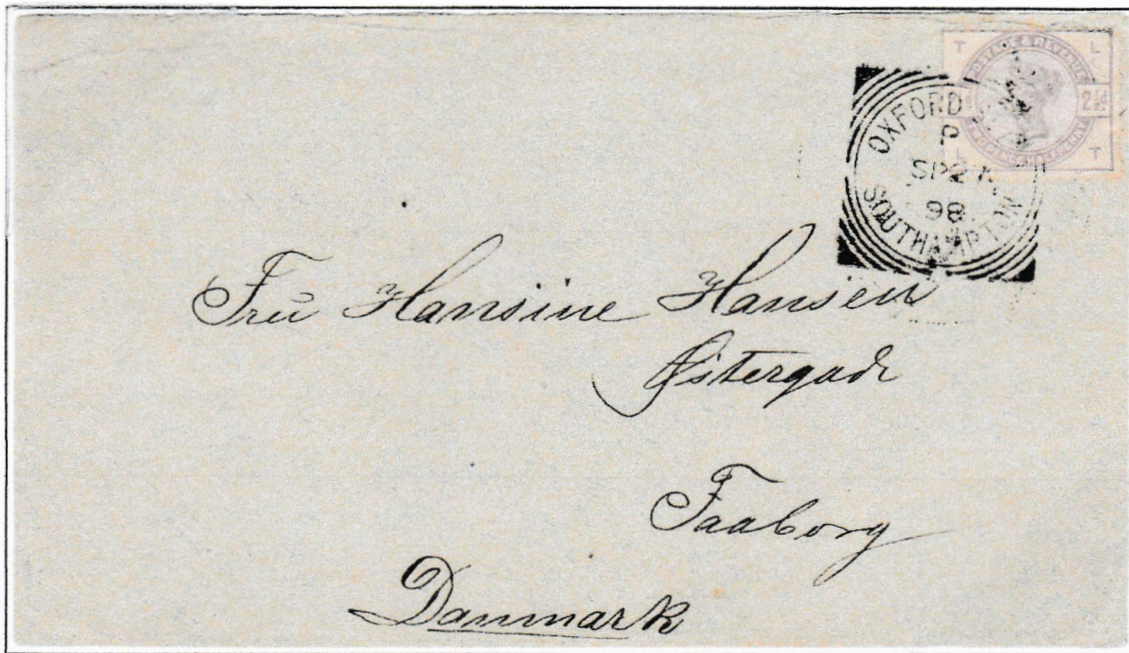 T L
POSTAGE & REVENUE
2½d
L T
OXFORD
P
SP 27
98
SOUTHAMPTON
Fru Hansine Hansen
Østergade
Faaborg
Danmark